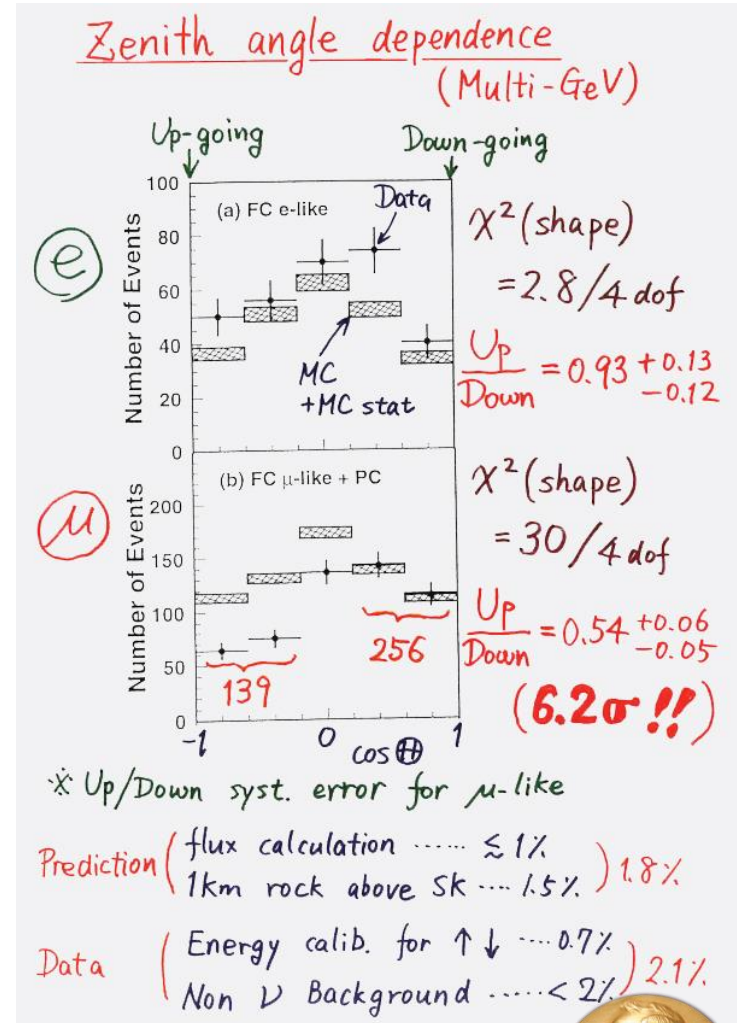 Zenith angle dependence
(Multi-GeV)
Up-going
Down-going
e
Number of Events
100
80
60
40
20
0
(a) FC e-like
Data
MC
+MC stat
χ²(shape)
= 2.8/4 dof
Up/Down = 0.93 +0.13 -0.12
μ
Number of Events
200
150
100
50
0
(b) FC μ-like + PC
139
256
-1 0 1
cos Θ
χ²(shape)
= 30/4 dof
Up/Down = 0.54 +0.06 -0.05
(6.2σ!!)
※ Up/Down syst. error for μ-like
Prediction ( flux calculation ...... ≲ 1%
1km rock above SK .... 1.5% ) 1.8%
Data ( Energy calib. for ↑↓ .... 0.7%
Non ν Background ..... < 2% ) 2.1%